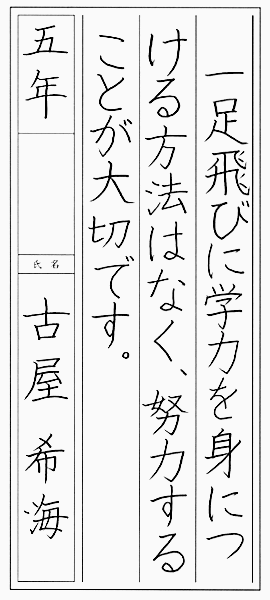 一足飛びに学力を身につ
ける方法はなく、努力する
ことが大切です。
五年
氏名
古屋 希海